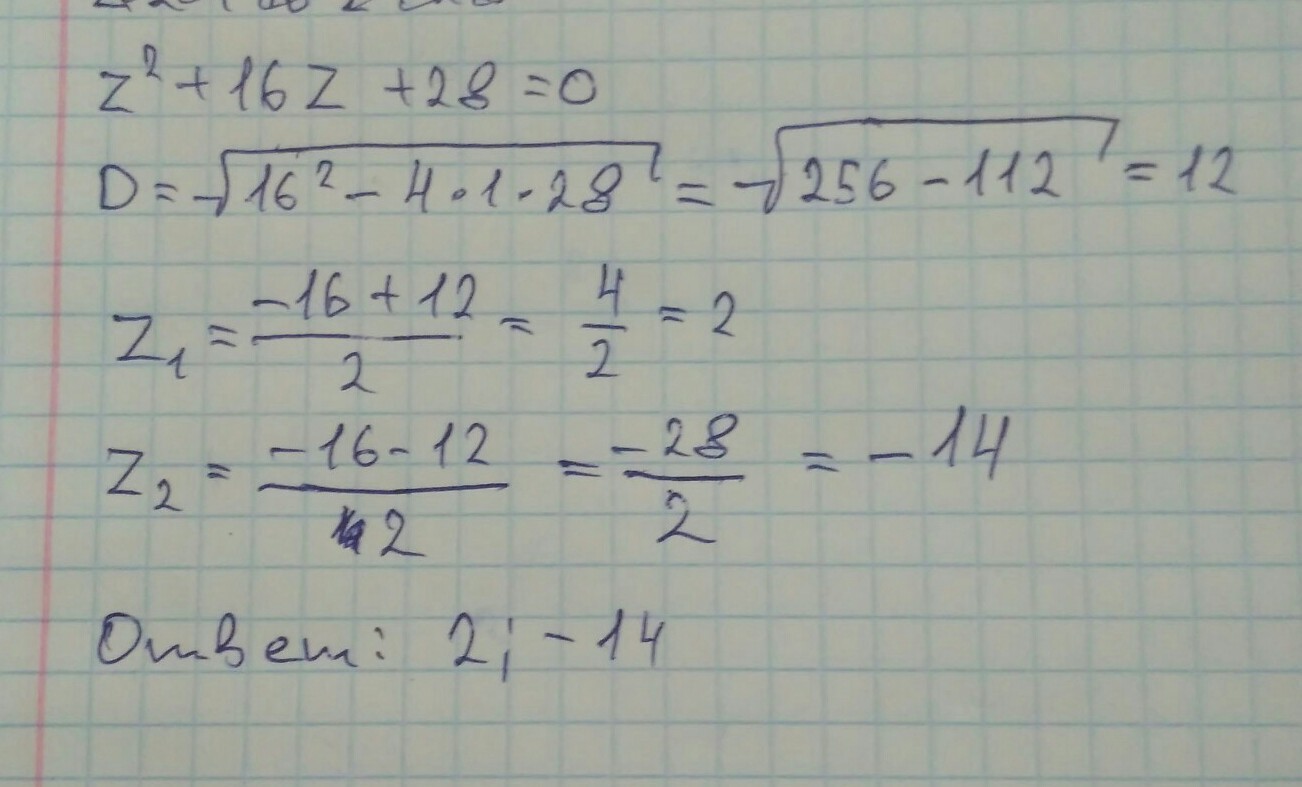 z² + 16z + 28 = 0
D = √(16² - 4·1·28) = √(256 - 112) = 12
z₁ = (-16 + 12)/2 = 4/2 = 2
z₂ = (-16 - 12)/2 = -28/2 = -14
Ответ: 2; -14